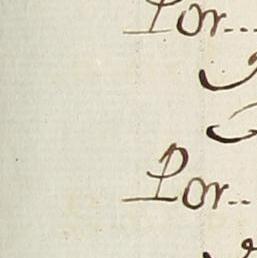 Por...
Por..